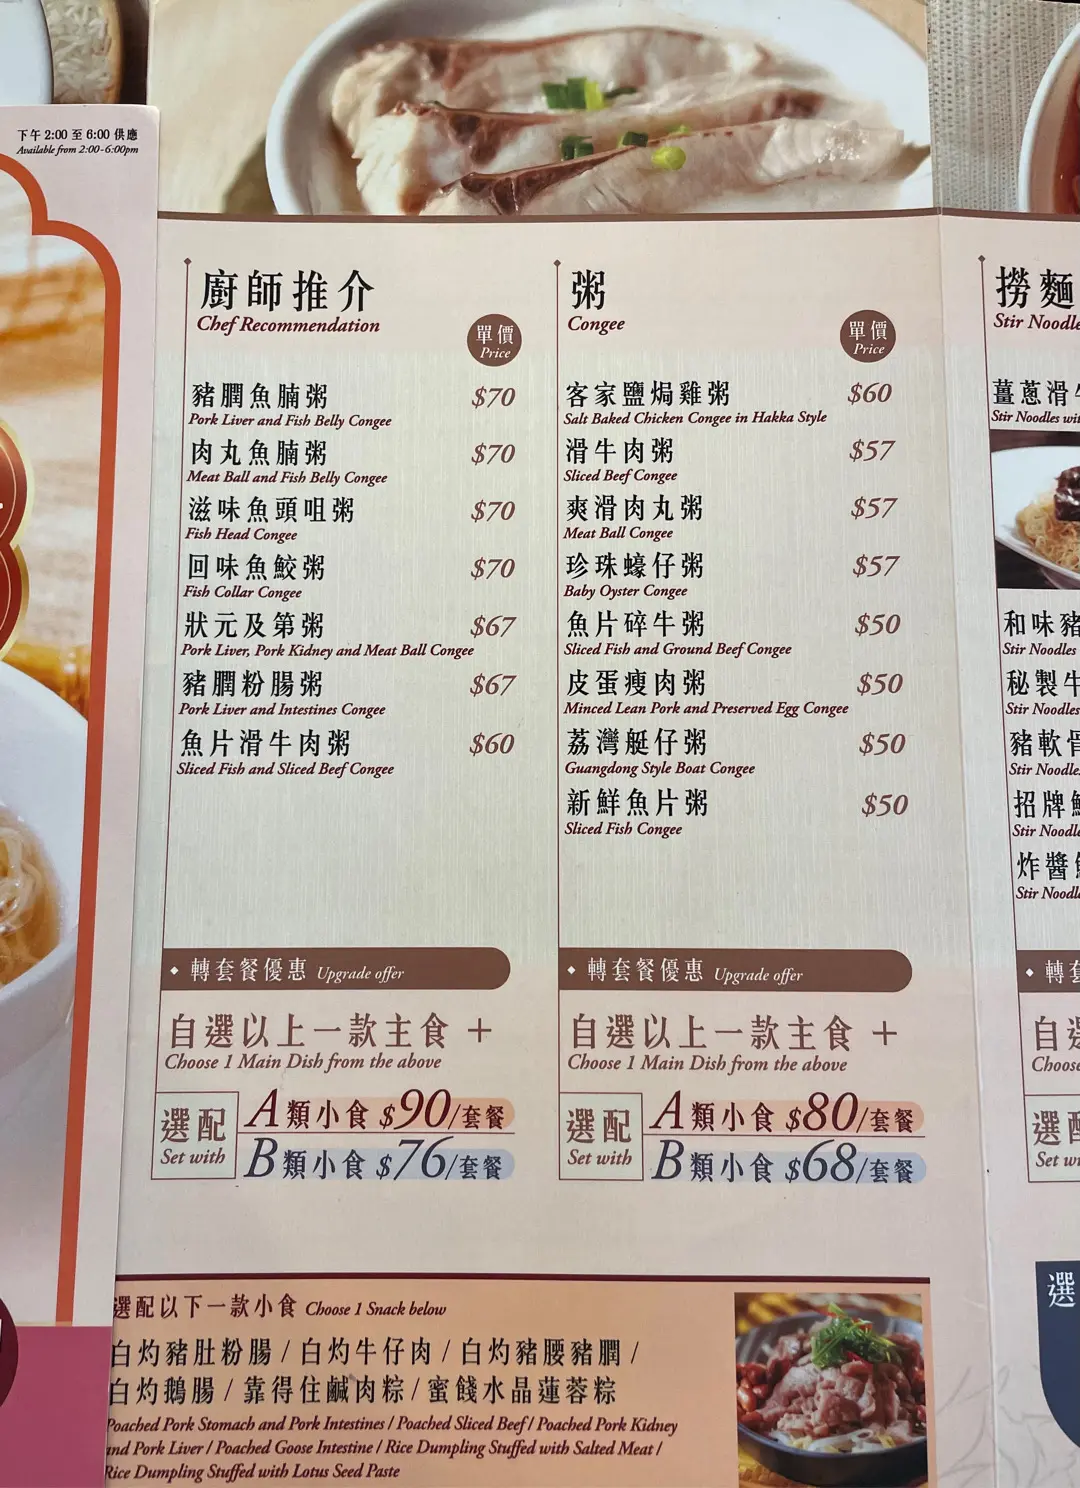 下午 2:00 至 6:00 供應
Available from 2:00-6:00pm
廚師推介
Chef Recommendation
單價
Price
豬膶魚腩粥 $70
Pork Liver and Fish Belly Congee
肉丸魚腩粥 $70
Meat Ball and Fish Belly Congee
滋味魚頭咀粥 $70
Fish Head Congee
回味魚鮫粥 $70
Fish Collar Congee
狀元及第粥 $67
Pork Liver, Pork Kidney and Meat Ball Congee
豬膶粉腸粥 $67
Pork Liver and Intestines Congee
魚片滑牛肉粥 $60
Sliced Fish and Sliced Beef Congee
◆ 轉套餐優惠 Upgrade offer
自選以上一款主食 +
Choose 1 Main Dish from the above
選配
Set with
A類小食 $90/套餐
B類小食 $76/套餐
粥
Congee
單價
Price
客家鹽焗雞粥 $60
Salt Baked Chicken Congee in Hakka Style
滑牛肉粥 $57
Sliced Beef Congee
爽滑肉丸粥 $57
Meat Ball Congee
珍珠蠔仔粥 $57
Baby Oyster Congee
魚片碎牛粥 $50
Sliced Fish and Ground Beef Congee
皮蛋瘦肉粥 $50
Minced Lean Pork and Preserved Egg Congee
荔灣艇仔粥 $50
Guangdong Style Boat Congee
新鮮魚片粥 $50
Sliced Fish Congee
◆ 轉套餐優惠 Upgrade offer
自選以上一款主食 +
Choose 1 Main Dish from the above
選配
Set with
A類小食 $80/套餐
B類小食 $68/套餐
撈麵
Stir Noodle
薑蔥滑
Stir Noodles wi
和味豬
Stir Noodles
秘製牛
Stir Noodles
豬軟骨
Stir Noodle
招牌
Stir Noodl
炸醬
Stir Noodl
◆ 轉
自
Choos
選
Set w
選
選配以下一款小食 Choose 1 Snack below
白灼豬肚粉腸 / 白灼牛仔肉 / 白灼豬腰豬膶 /
白灼鵝腸 / 靠得住鹹肉粽 / 蜜餞水晶蓮蓉粽
Poached Pork Stomach and Pork Intestines / Poached Sliced Beef / Poached Pork Kidney
and Pork Liver / Poached Goose Intestine / Rice Dumpling Stuffed with Salted Meat /
Rice Dumpling Stuffed with Lotus Seed Paste